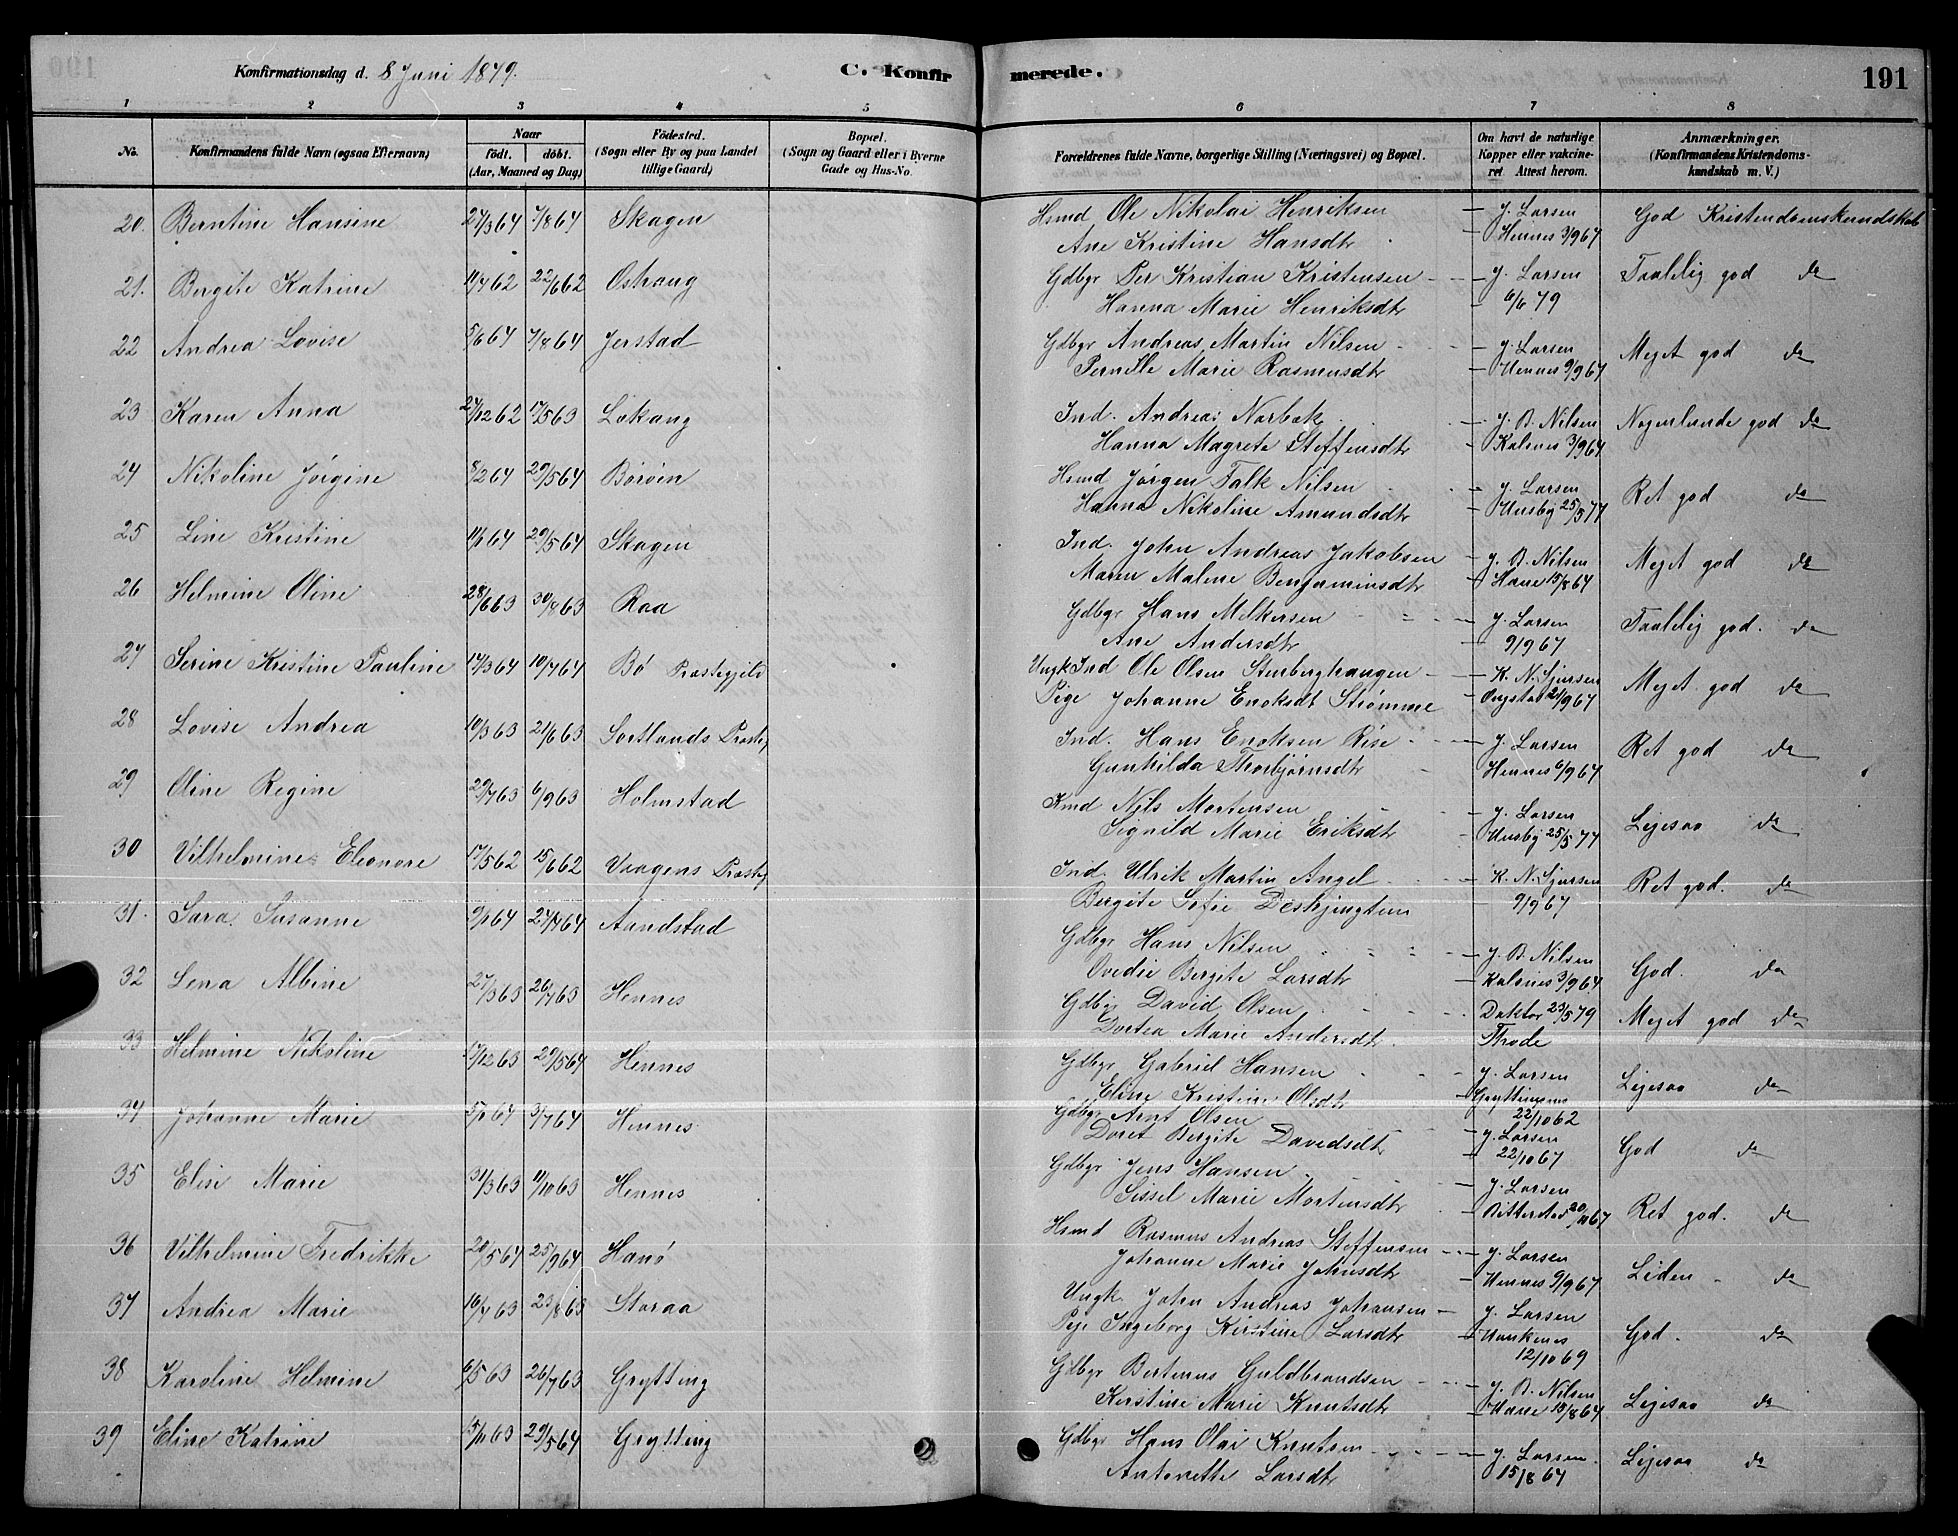 Konfirmationsdag d. 8 Juni 1879. C. Konfirmerede. 191
1 2 3 4 5 6 7 8
No. Konfirmandens fulde Navn (ogsaa Efternavn) Naar født. døbt. (Aar, Maaned og Dag) Fødested. (Sogn eller By og paa Landet tillige Gaard) Bopæl. (Sogn og Gaard eller i Byerne Gade og Hus-No. Forældrenes fulde Navne, borgerlige Stilling (Næringsvei) og Bopæl. Om havt de naturlige Kopper eller vakcineret Attest herom. Anmærkninger. (Konfirmandens Kristendomskundskab m. V.)
20. Berntine Hansine 27/3 64 7/8 64 Skagen Hsmd Ole Nikolai Henriksen — J. Larsen God Kristendomskundskab
Ane Kristine Hansdtr — Hennes 3/9 67
21. Bergite Katrine 11/4 62 22/6 62 Østrang Gdbgr Per Kristian Kristensen — J. Larsen Taalelig god do
Hanna Marie Henriksdtr — 6/6 79
22 Andrea Lovise 5/6 64 7/8 64 Jerstad Gdbgr Andreas Martin Nilsen — J. Larsen Meget god do
Pernille Marie Rasmusdtr — Hennes 9/9 67
23 Karen Anna 27/12 62 17/5 63 Løkang Ind. Andreas Norbak — J. B. Nilsen Nogenlunde god do
Hanna Magrete Steffensdtr — Kalsnes 3/9 64
24 Nikoline Jørgine 8/2 64 29/5 64 Børøen Hsmd Jørgen Falk Nilsen — J. Larsen Ret god do
Hanna Nikoline Amundsdtr — Husby 25/5 77
25 Line Kristine 11/1 64 29/5 64 Skagen Ind. John Andreas Jakobsen — J. B. Nilsen Meget god do
Maren Malene Benjaminsdtr — Hane 15/8 64
26 Helmine Oline 28/6 63 30/8 63 Raa Gdbgr Hans Melkersen — J. Larsen Taalelig god. do
Ane Andersdtr — 9/9 67
27 Serine Kristine Pauline 14/3 64 10/7 64 Bø Præstegjeld Ungk Ind Ole Olsen Stenberghaugen — K. N. Sjursen Meget god do
Pige Johanne Enoksdt Strømme — Ongstad 21/9 67
28 Lovise Andrea 10/3 63 21/6 63 Sortlands Præstgj Ind. Hans Enoksen Rise — J. Larsen Ret god do
Gunhilda Thorbjørnsdtr — Hennes 6/9 67
29 Oline Regine 29/7 63 6/9 63 Holmstad Kmd Nils Mortensen — J. Larsen Ligesaa do
Signild Marie Eriksdtr — Husby 25/5 77
30 Vilhelmine Eleonore 17/5 62 15/6 62 Vaagens Præstgj Ind. Ulrik Martin Angel — K. N. Sjursen Ret god. do
Bergite Sofie — 9/9 67
31. Sara Susanne 9/1 64 27/4 64 Aandstad Gdbgr Hans Nilsen — J. B. Nilsen God. do
Ovedie Bergite Larsdtr — Kalsnes 3/9 64
32 Lena Albine 27/3 63 26/7 63 Hennes Gdbgr David Olsen — Doktor 23/5 79 Meget god do
Dortea Marie Andersdtr. Thode
33 Helmine Nikoline 17/12 63 29/5 64 Hennes Gdbgr Gabriel Hansen — J. Larsen Ligesaa do
Eline Kristine Olsdtr — Gryttingens 22/10 62
34 Johanne Marie 5/1 64 3/7 64 Hennes Gdbgr Arnt Olsen — J. Larsen God do
Doret Bergite Davidsdtr — 22/10 67
35 Elise Marie 31/3 63 11/10 63 Hennes Gdbgr Jens Hansen — J. Larsen Ret god. do
Sissel Marie Mortensdtr — Bitterstad 20/10 67
36 Vilhelmine Fredrikke 20/5 64 25/9 64 Hanø Hsmd Rasmus Andreas Steffensen — J. Larsen Liden do
Johanne Marie Johnsdtr — Hennes 9/9 67
37 Andrea Marie 16/4 63 23/8 63 Storaa Ungk. John Andreas Johansen — J. Larsen God. do
Pige Ingeborg Kirstine Larsdtr — Haukenes 12/10 69
38 Karoline Helmine 6/5 63 26/7 63 Grytting Gdbgr Bertinus Guldbrandsen — J. B. Nilsen Ligesaa do
Kerstine Marie Knutsdtr — Hane 15/8 64
39 Eline Katrine 15/11 63 29/5 64 Grytting Gdbgr Hans Olai Knutsen — J. Larsen Ligesaa do
Antonette Larsdtr — 15/8 64